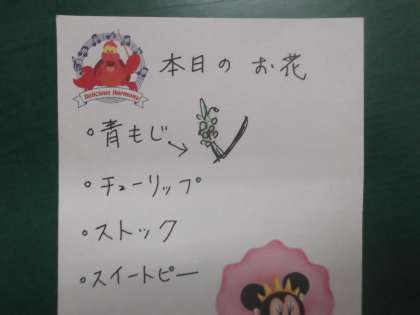 Delicious Harmony
本日の お花
○青もじ
○チューリップ
○ストック
○スイートピー